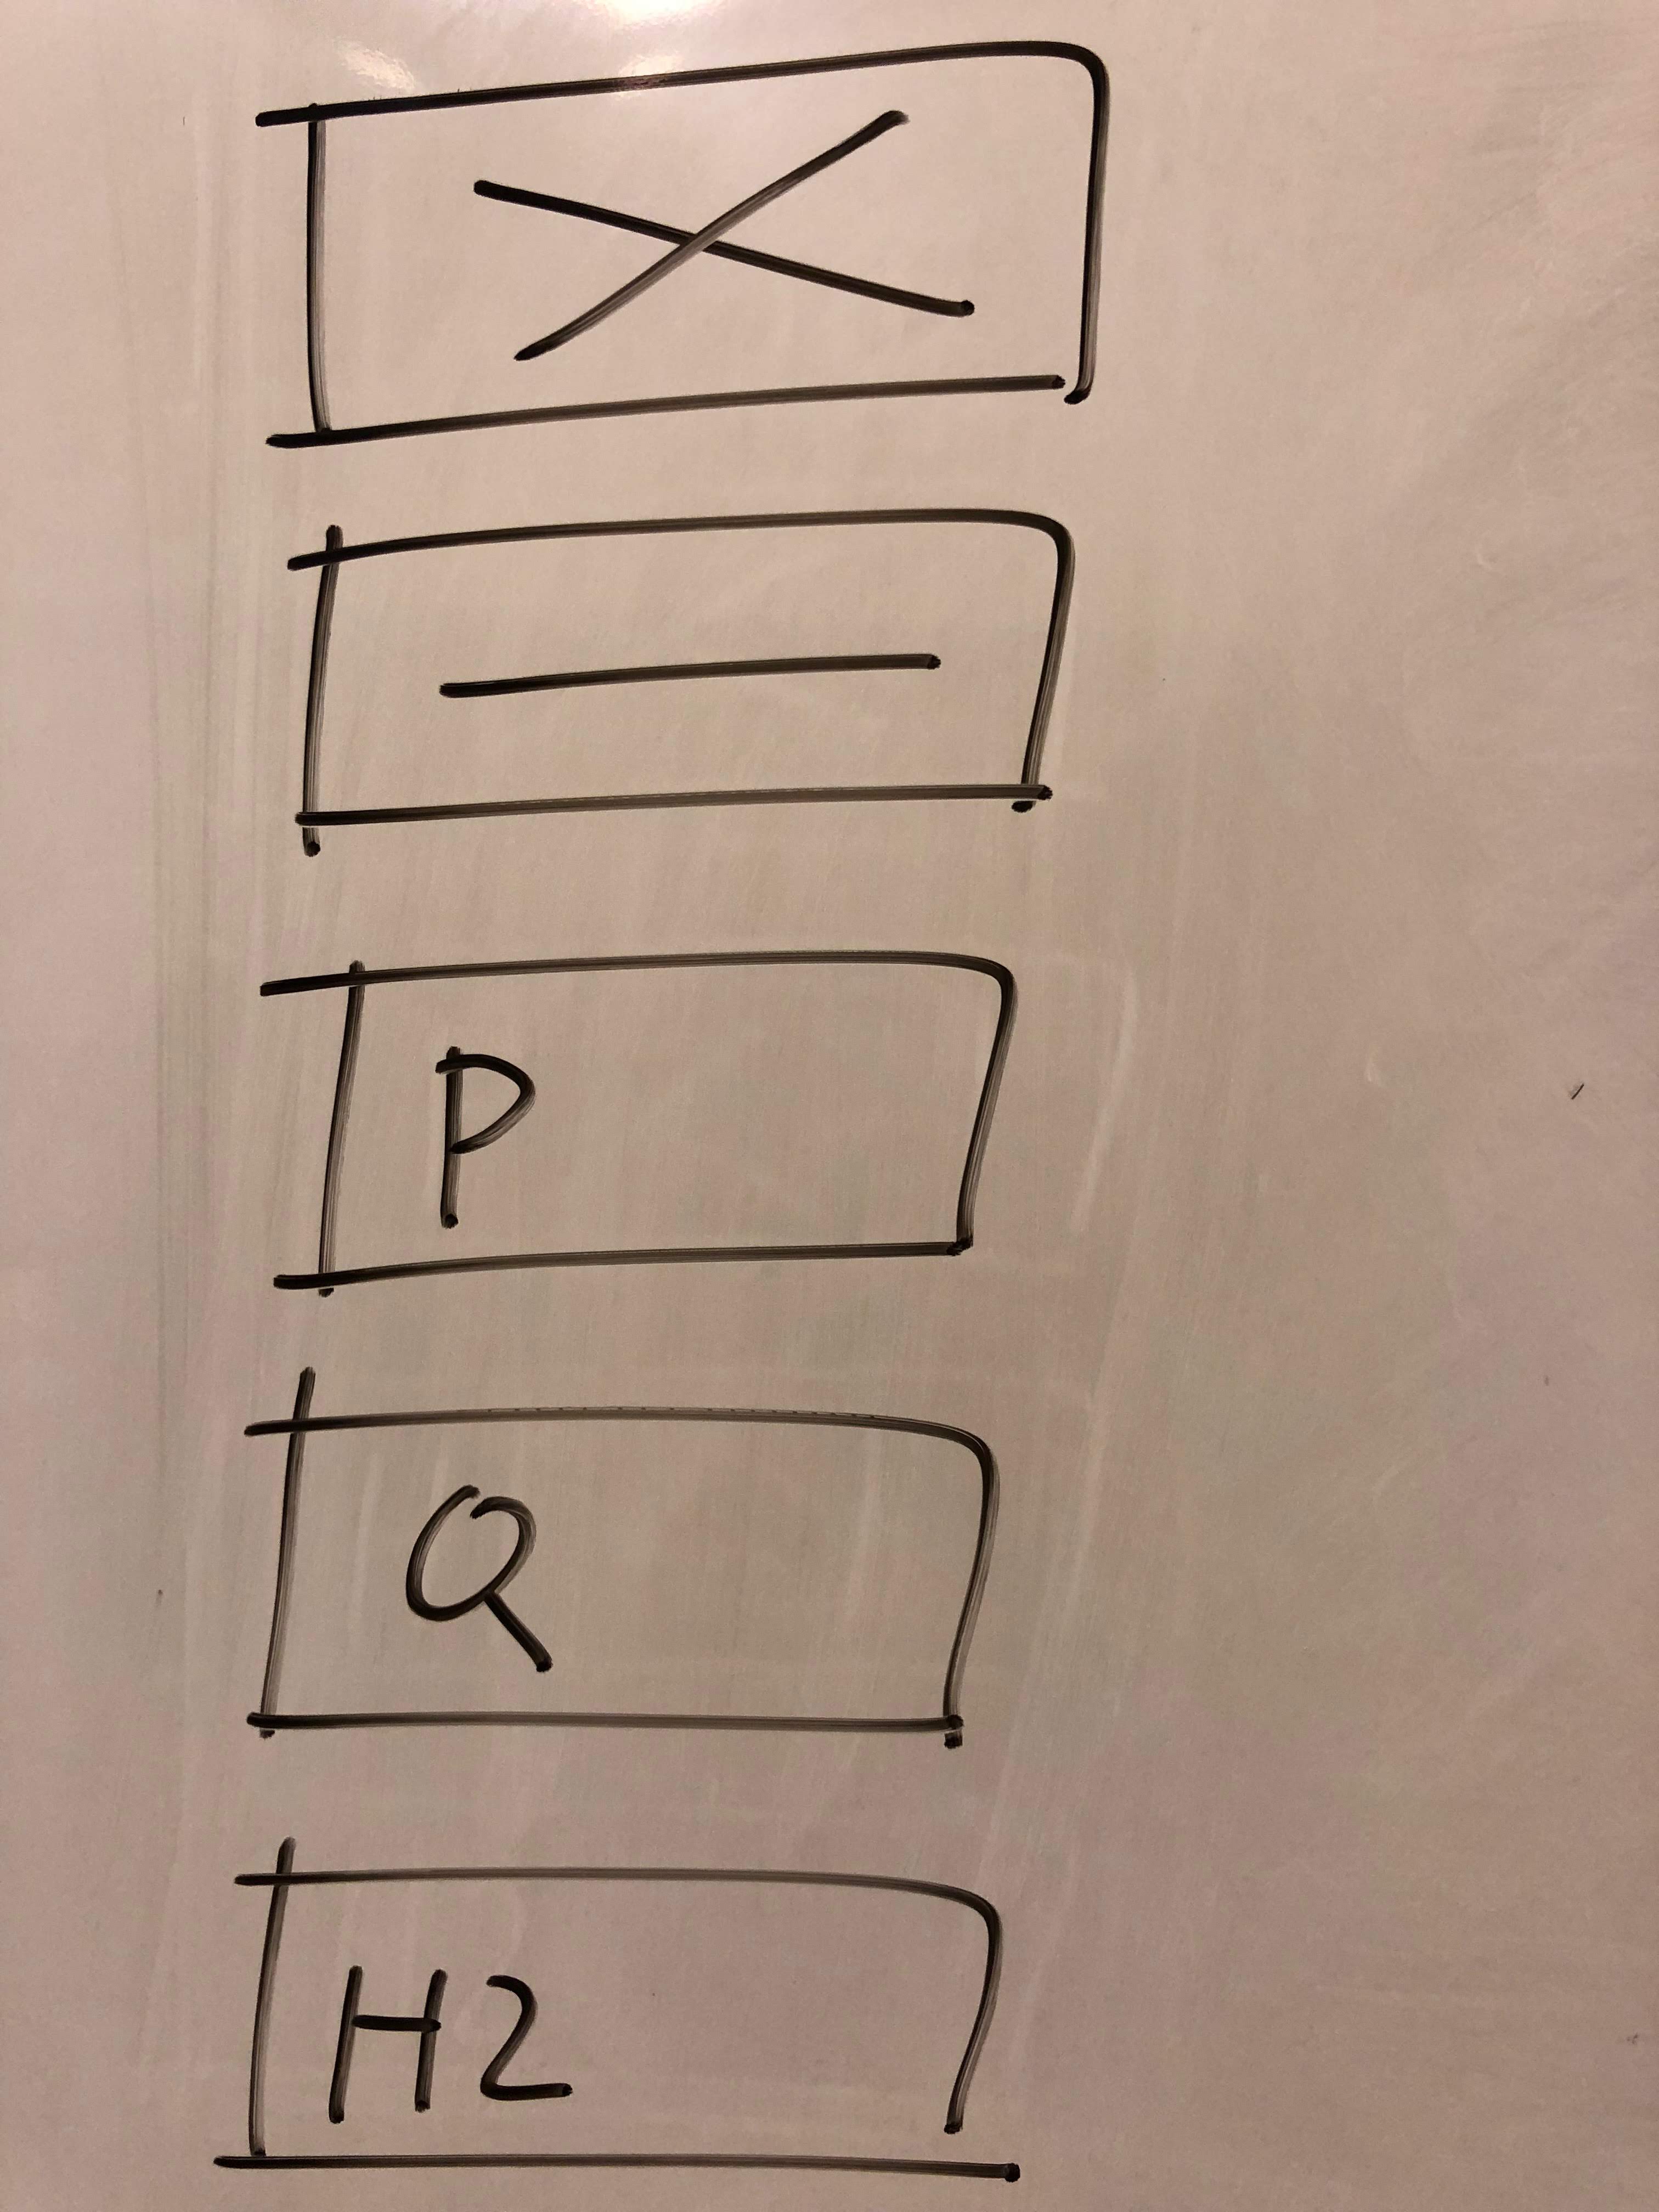 X
—
P
Q
H2